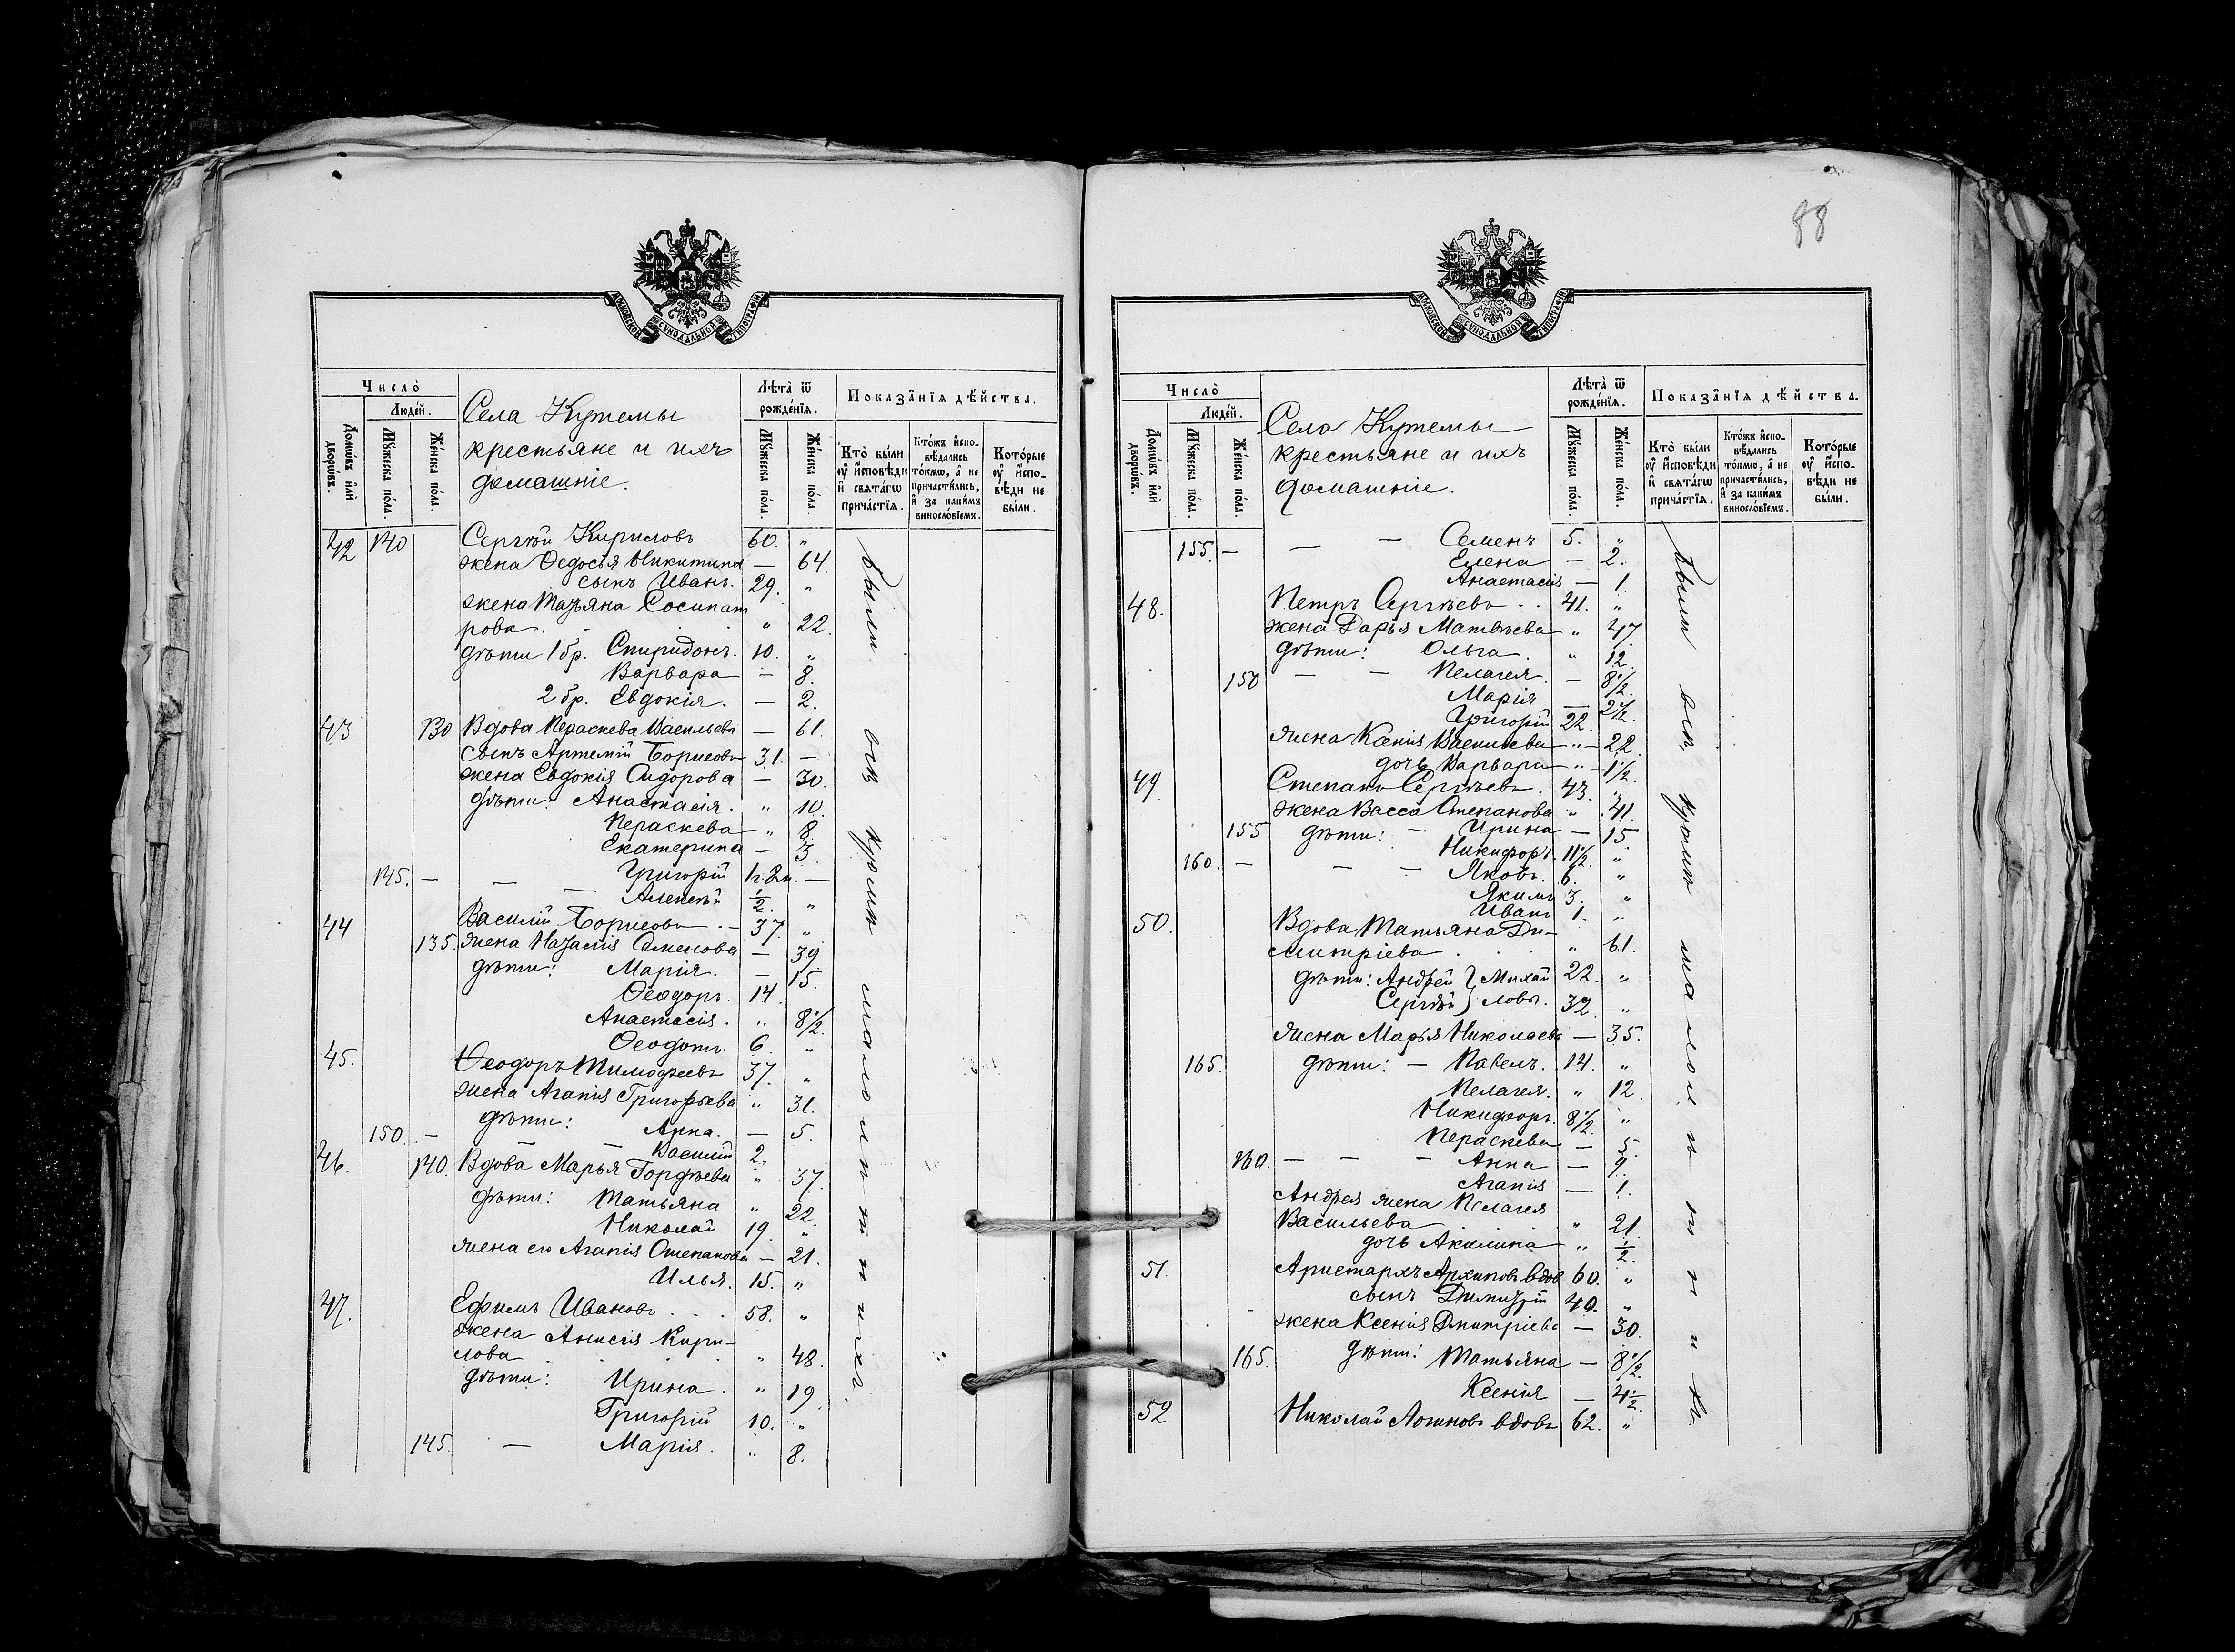 МОСКОВСКОЙ СѴНОДАЛЬНОЙ ТИПОГРАФІИ
Число̀
Люде́й.
Домѡ́въ и҆лѝ дворѡ́въ.
Мꙋ́жеска по́ла.
Же́нска по́ла.
Села Кутемы
крестьяне и ихъ
домашніе.
Лѣ́та ѿ рожде́нїѧ.
Мꙋ́жеска по́ла.
Же́нска по́ла.
Показа̑нїѧ дѣ́йства.
Кто̀ бы́ли ᲂу҆ и҆сповѣ́ди и҆ свѧта́гѡ прича́стїѧ.
Кто́жъ и҆сповѣ́дались то́кмѡ, а҆ не причасти́лись, и҆ за каки́мъ винослові́емъ.
Кото́рые ᲂу҆ и҆сповѣ́ди не бы́ли.
42 140 Сергѣй Кириловъ. 60. "
жена Ѳедосья Никитина — 64.
сынъ Иванъ. 29. "
жена Татьяна Сосипат
рова. " 22.
дѣти 1 бр. Спиридонъ. 10. "
Варвара — 8.
2 бр. Евдокія. — 2.
43 130 Вдова Пераскева Васильева — 61.
сынъ Артемій Борисовъ 31. —
жена Евдокія Сидорова — 30.
дѣти: Анастасія. " 10.
Пераскева — " 8.
Екатерина — 3.
145. — — Григорій —
Алексѣй ½. "
44 Василій Борисовъ. — 37. "
135. жена Наталія Семенова — 39
дѣти: Марія. — 15.
Ѳеодоръ. 14. "
Анастасія. " 8½.
Ѳеодотъ. 6. "
45. Ѳеодоръ Тимоѳеевъ 37. "
жена Агапія Григорьева " 31.
дѣти: Анна. — 5.
150. — — — Василій 2.
46. 140. Вдова Марья Гордѣева " 37.
дѣти: Татьяна " 22.
Николай 19. "
жена его Агапія Степанова — 21.
Илья. 15. "
47. Ефимъ Ивановъ . . . 58. "
жена Анисія Кири-
лова " 48.
дѣти: Ирина. " 19.
Григорій 10. "
145. — Марія. " 8.
Были всѣ кромѣ малолѣтнихъ.
88
МОСКОВСКОЙ СѴНОДАЛЬНОЙ ТИПОГРАФІИ
Число̀
Люде́й.
Домѡ́въ и҆лѝ дворѡ́въ.
Мꙋ́жеска по́ла.
Же́нска по́ла.
Села Кутемы
крестьяне и ихъ
домашніе.
Лѣ́та ѿ рожде́нїѧ.
Мꙋ́жеска по́ла.
Же́нска по́ла.
Показа̑нїѧ дѣ́йства.
Кто̀ бы́ли ᲂу҆ и҆сповѣ́ди и҆ свѧта́гѡ прича́стїѧ.
Кто́жъ и҆сповѣ́дались то́кмѡ, а҆ не причасти́лись, и҆ за каки́мъ винослові́емъ.
Кото́рые ᲂу҆ и҆сповѣ́ди не бы́ли.
155. — — — Семенъ 5. "
Елена — 2.
Анастасія — 1.
48. Петръ Сергѣевъ . . 41. "
жена Дарья Матвѣева " 47.
дѣти: Ольга. " 12.
150 — — Пелагея. — 8½.
Марія — 2½.
Григорій 22.
жена Ксенія Васильева " — 22.
дочь Варвара " — 1½.
49. Степанъ Сергѣевъ. 43. "
жена Васса Степанова " 41.
155 дѣти: — Ирина — 15.
Никифоръ. 11½. "
160. — — — Яковъ. 6. "
Якимъ 3. "
Иванъ 1. "
50. Вдова Татьяна Ди-
митріева . . . " 61.
дѣти: Андрей } Михай 22. "
Сергѣй } ловы. 32. "
жена Марья Николаева — 35.
165. дѣти: — Павелъ. 14. "
Пелагея. " 12.
Никифоръ. 8½. "
Пераскева — 5.
160. — — — Анна — 9.
Агапія — 1.
Андрея жена Пелагея
Васильева " 21.
дочь Акилина — " ½.
51. Аристархъ Архиповъ вдов 60. "
сынъ Димитрій 40. "
жена Ксенія Дмитріева — 30.
165. дѣти: Татьяна — 8½.
Ксенія — 4½.
52 Николай Логиновъ вдовъ 62. "
Были всѣ кромѣ малолѣтнихъ.